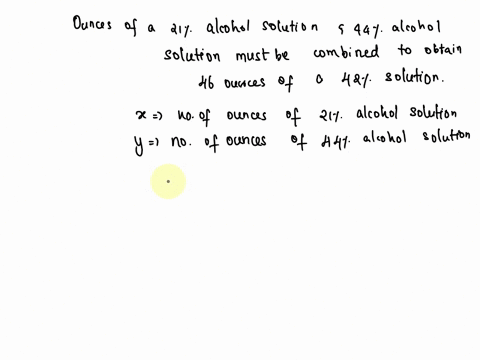 Ounces of a 21% alcohol solution & 44% alcohol
solution must be combined to obtain
46 ounces of a 42% solution.
x => no. of ounces of 21% alcohol solution
y => no. of ounces of 44% alcohol solution